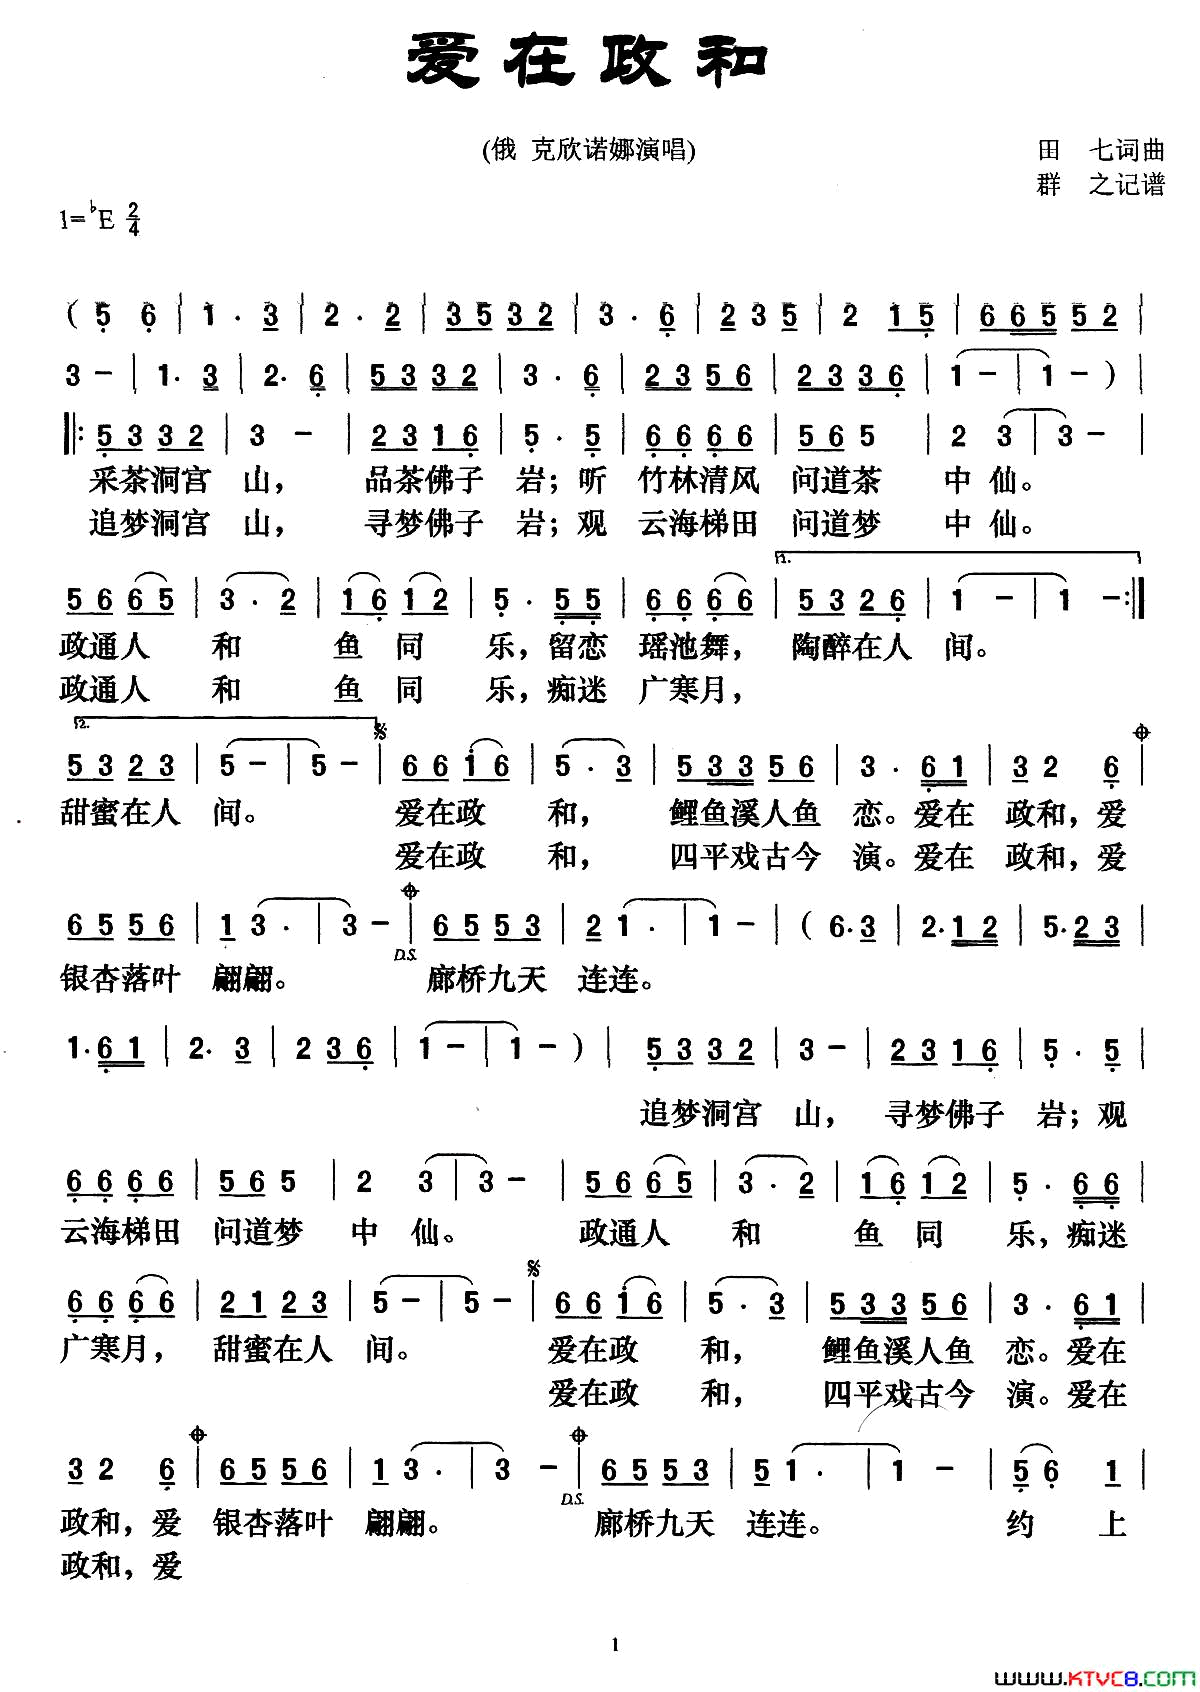 爱在政和
(俄 克欣诺娜演唱)
田 七词曲
群 之记谱
1=♭E 2/4
( 5 6 | 1 · 3 | 2 · 2 | 3 5 3 2 | 3 · 6 | 2 3 5 | 2 1 5 | 6 6 5 5 2 |
3 - | 1 · 3 | 2 · 6 | 5 3 3 2 | 3 · 6 | 2 3 5 6 | 2 3 3 6 | 1 - | 1 - ) |
‖: 5 3 3 2 | 3 - | 2 3 1 6 | 5 · 5 | 6 6 6 6 | 5 6 5 | 2 3 | 3 - |
采茶洞宫 山， 品茶佛子 岩；听 竹林清风 问道茶 中 仙。
追梦洞宫 山， 寻梦佛子 岩；观 云海梯田 问道梦 中 仙。
1.
5 6 6 5 | 3 · 2 | 1 6 1 2 | 5 · 5 5 | 6 6 6 6 | 5 3 2 6 | 1 - | 1 - :‖
政通人 和 鱼 同 乐，留恋 瑶池舞， 陶醉在人 间。
政通人 和 鱼 同 乐，痴迷 广寒月，
2.
5 3 2 3 | 5 - | 5 - | 6 6 1 6 | 5 · 3 | 5 3 3 5 6 | 3 · 6 1 | 3 2 6 |
甜蜜在人 间。 爱在政 和， 鲤鱼溪人鱼 恋。爱在 政和，爱
爱在政 和， 四平戏古今 演。爱在 政和，爱
6 5 5 6 | 1 3 · | 3 - | 6 5 5 3 | 2 1 · | 1 - | ( 6 · 3 | 2 · 1 2 | 5 · 2 3 |
D.S.
银杏落叶 翩翩。 廊桥九天 连连。
1 · 6 1 | 2 · 3 | 2 3 6 | 1 - | 1 - ) | 5 3 3 2 | 3 - | 2 3 1 6 | 5 · 5 |
追梦洞宫 山， 寻梦佛子 岩；观
6 6 6 6 | 5 6 5 | 2 3 | 3 - | 5 6 6 5 | 3 · 2 | 1 6 1 2 | 5 · 6 6 |
云海梯田 问道梦 中 仙。 政通人 和 鱼 同 乐，痴迷
6 6 6 6 | 2 1 2 3 | 5 - | 5 - | 6 6 1 6 | 5 · 3 | 5 3 3 5 6 | 3 · 6 1 |
广寒月， 甜蜜在人 间。 爱在政 和， 鲤鱼溪人鱼 恋。爱在
爱在政 和， 四平戏古今 演。爱在
3 2 6 | 6 5 5 6 | 1 3 · | 3 - | 6 5 5 3 | 5 1 · | 1 - | 5 6 1 |
D.S.
政和，爱 银杏落叶 翩翩。 廊桥九天 连连。 约 上
政和，爱
1
www.KTVC8.com